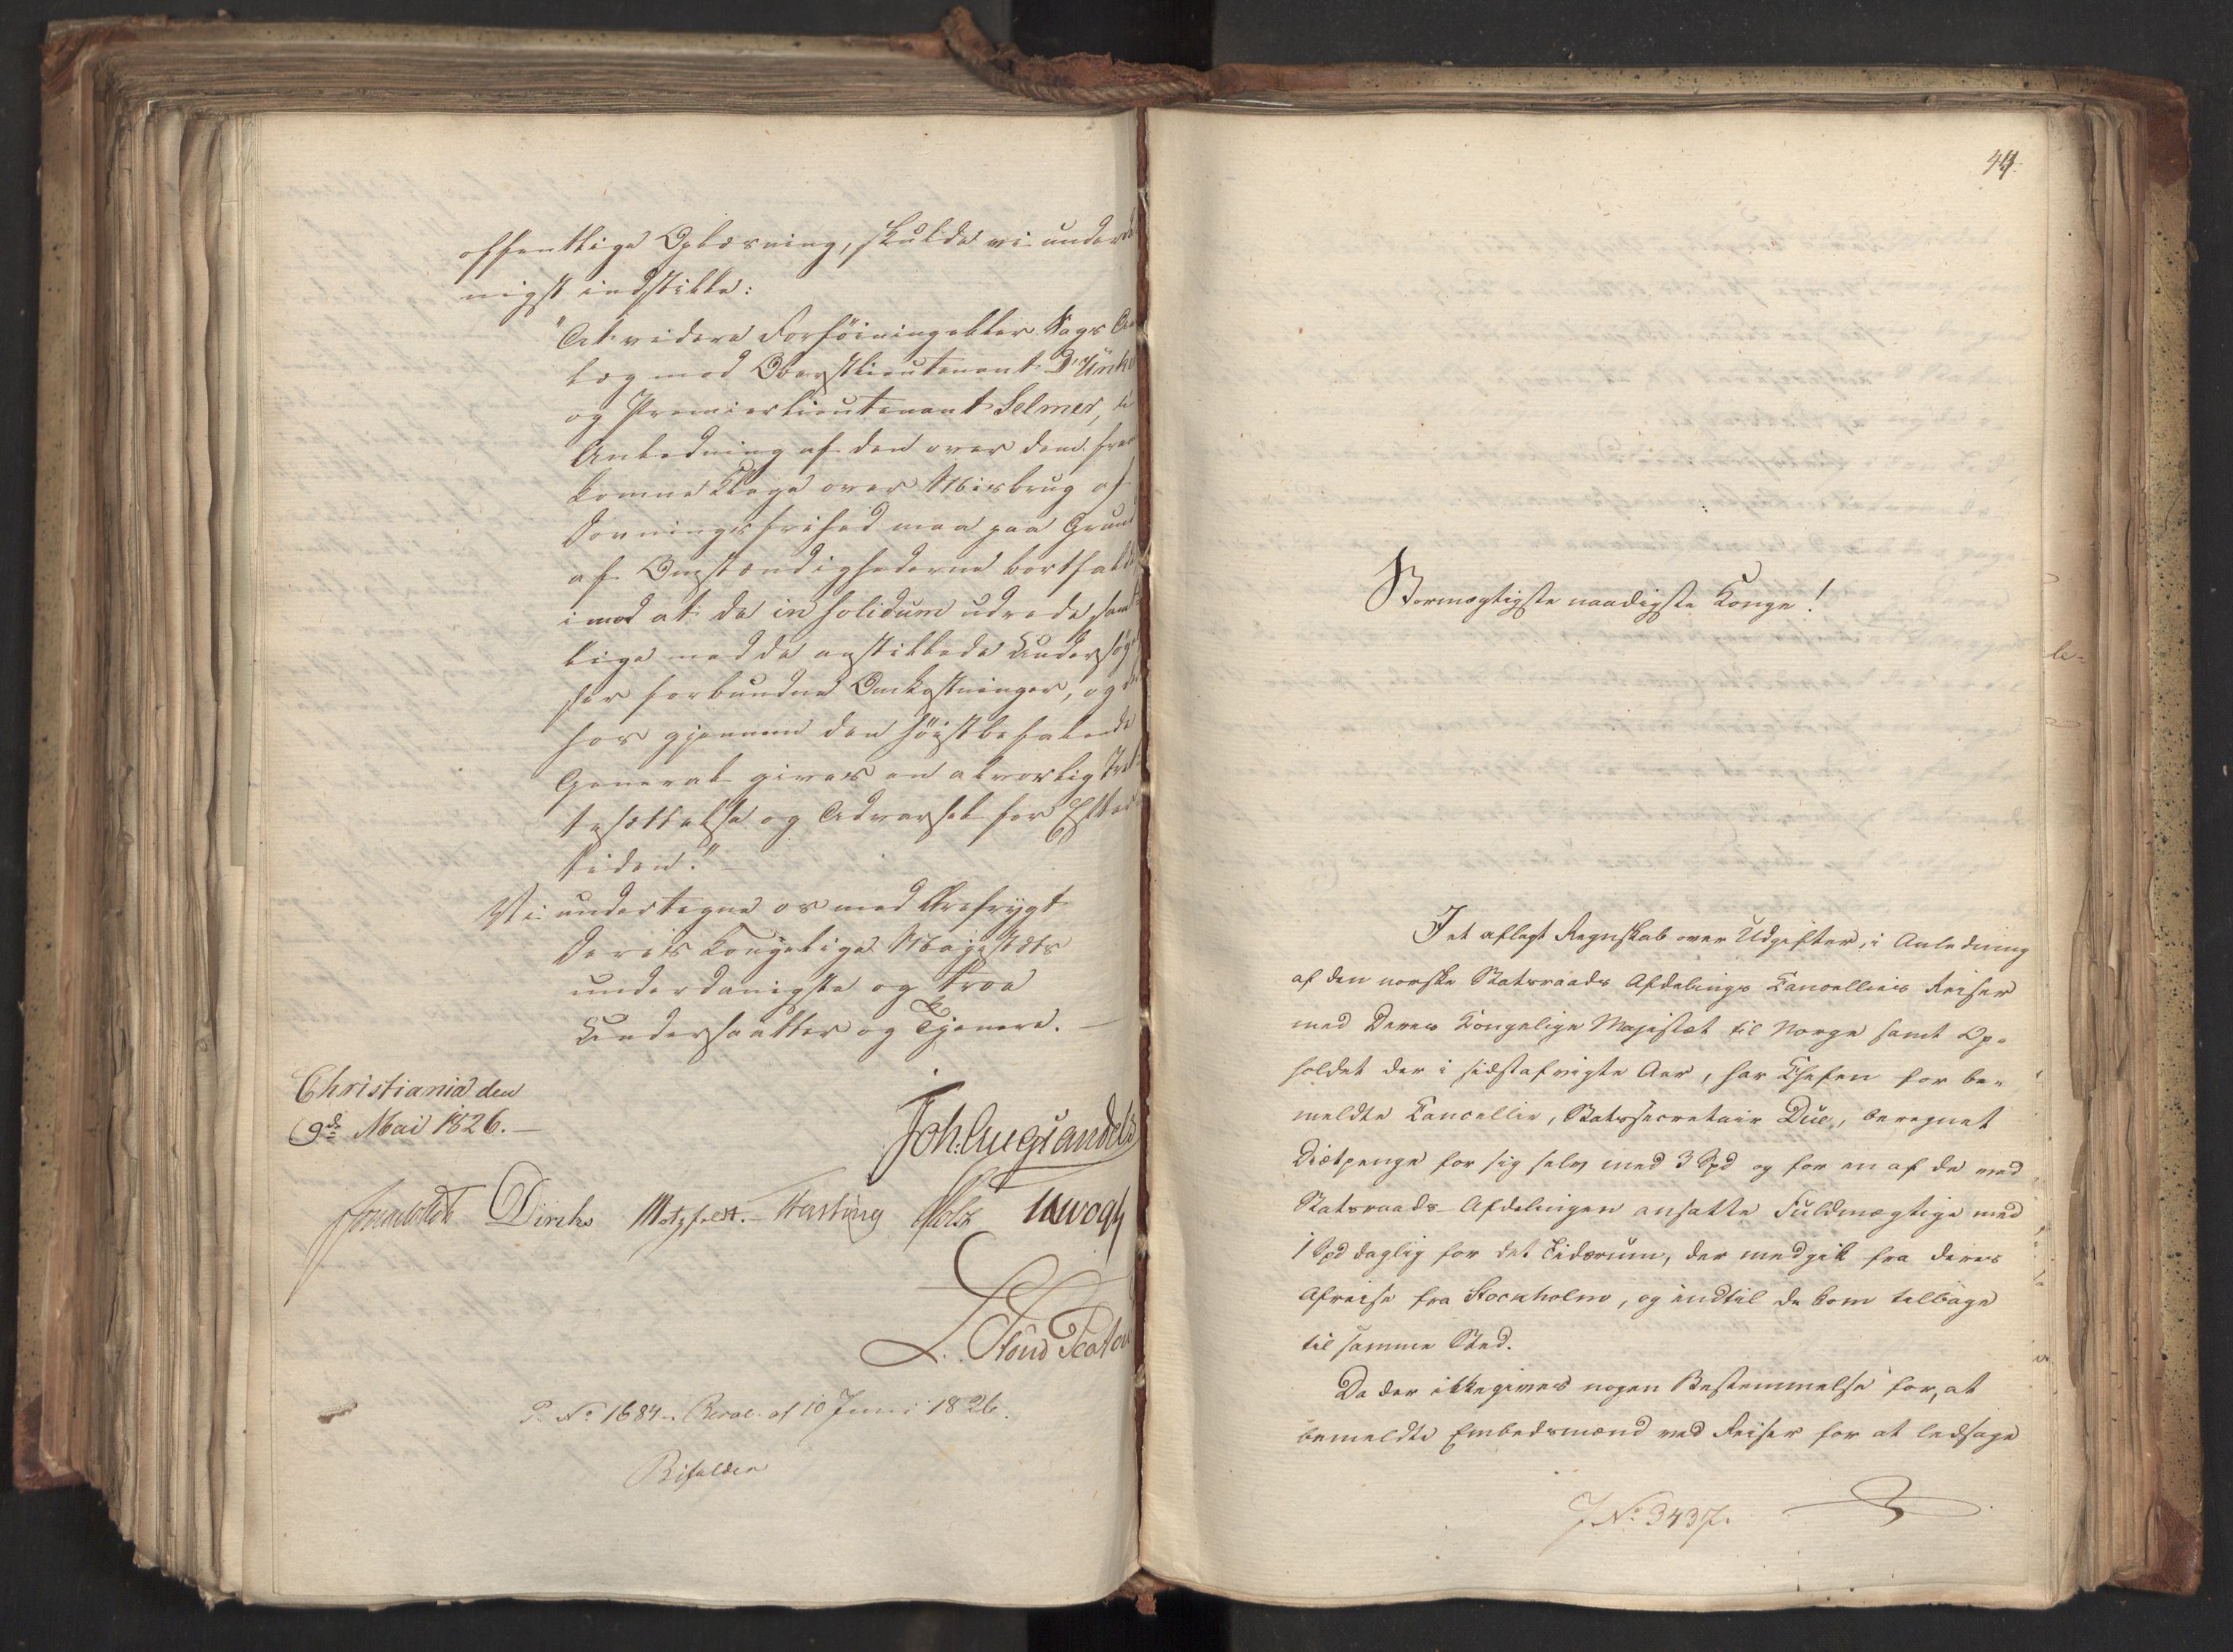 offentlige Oplæsning, skulde vi underda
nigst indstille:
"At videre Forføining eller Sags An
læg mod Oberstlieutenant D'Unke
og Premierlieutenant Selmer, i
Anledning af den over dem frem
komne Klage over Misbrug af
Skydsfrihed maa paa Grund
af Omstændighederne bortfalde
imod at de in solidum udrede samt
lige med de anstillede Undersøgel
ser forbundne Omkostninger, og der
for gjennem den høistbefalende
General gives en alvorlig Iret
tesættelse og Advarsel for Efter
tiden."
Vi undertegne os med Ærefrygt
Deres Kongelige Majestæts
underdanigste og troe
Undersaatter og Tjenere. —
Christiania den
9de Mai 1826. —
Joh. Aug: Sandels
Sommerhielm Diriks Motzfeldt. Fasting Holst U W Vogt
L. Stoud Platou
P. No 1684. Resol. af 10 Juni 1826.
Bifaldes
44.
Stormægtigste naadigste Konge!
I et aflagt Regnskab over Udgifter, i Anledning
af den norske Statsraads Afdelings Cancellies Reiser
med Deres Kongelige Majestæt til Norge samt Op-
holdet der i sidstafvigte Aar, har Chefen for be-
meldte Cancellie, Statssecretair Due, beregnet
Diætpenge for sig selv med 3 Spd og for en af de ved
Statsraads-Afdelingen ansatte Fuldmægtige med
1 Spd daglig for det Tidsrum, der medgik fra deres
Afreise fra Stockholm, og indtil de kom tilbage
til samme Sted.
Da der ikke gives nogen Bestemmelse for, at
bemeldte Embedsmænd ved Reiser for at ledsage
J. No 3437.